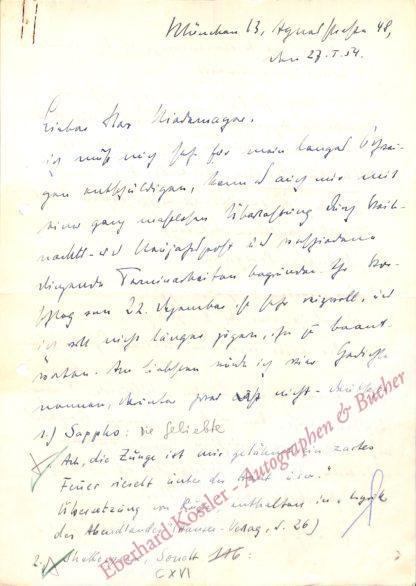 München 13, Agnesstraße 48,
den 27.I.54.
Lieber Herr Niedermayer,
ich muß mich sehr für mein langes Schwei-
gen entschuldigen, kann es auch nur mit
einer ganz maßlosen Überlastung durch Weih-
nachts- und Neujahrspost und verschiedene
dringende Terminarbeiten begründen. Ihr Vor-
schlag vom 22. Dezember ist sehr reizvoll, und
ich will nicht länger zögern, ihn zu beant-
worten. Am liebsten würde ich vier Gedichte
nennen, darunter zwar nicht -
1.) Sappho: Die Geliebte
"Ach, die Zunge ist mir gelähmt, ein zartes
Feuer rieselt unter der Haut usw."
Übersetzung von enthalten in "Lyrik
des Abendlandes" (Hanser-Verlag, S. 26)
2.) Shakespeare, Sonett 116:
CXVI
Eberhard Köstler Autographen & Bücher